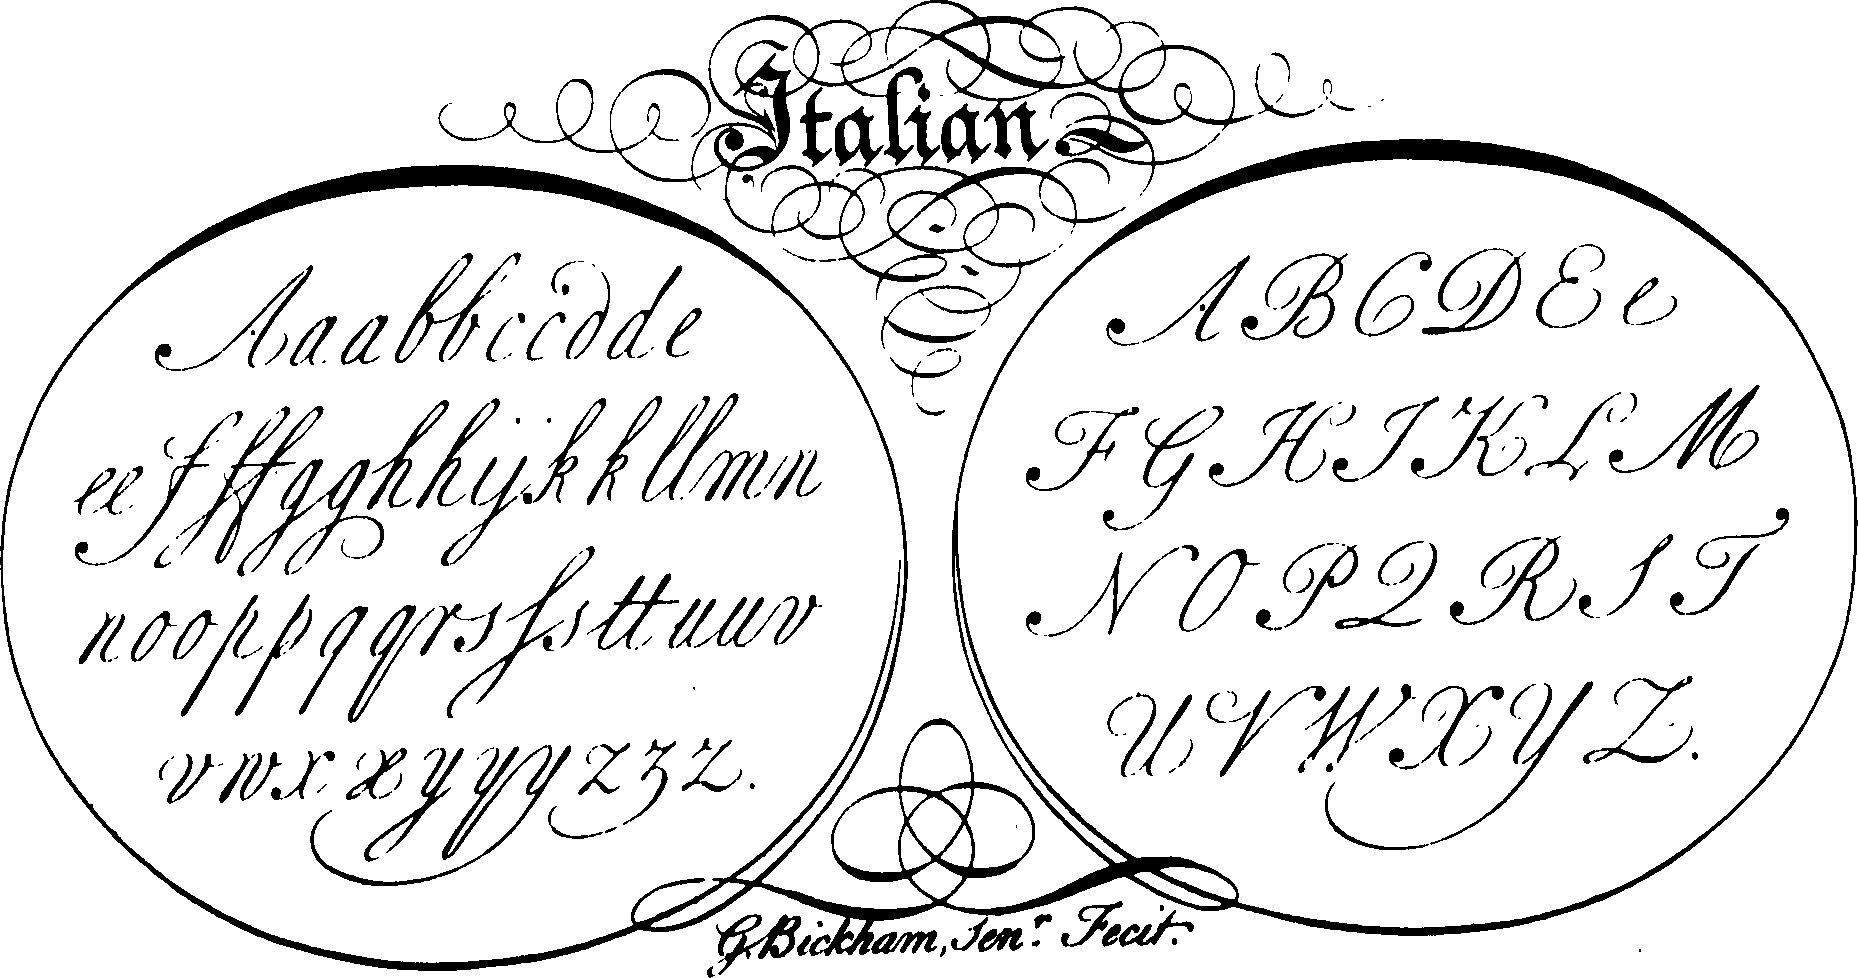 Italian
Aaabbccdde
eefffgghhijkkllmn
nooppqqrsſsttuuv
vwxxyyyzzz.
ABCDEe
FGHIKLM
NOPQRST
UVWXYZ.
G. Bickham, Senr. Fecit.